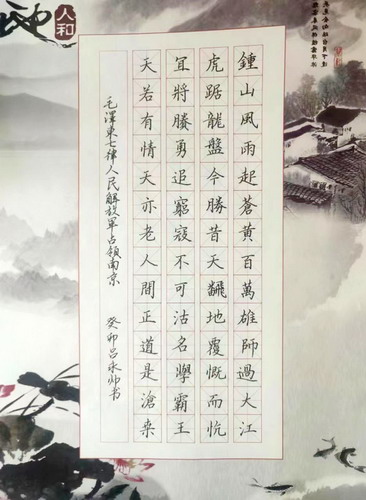 鍾山風雨起蒼黄百萬雄師過大江
虎踞龍盤今勝昔天飜地覆慨而忼
宜將賸勇追窮寇不可沽名學霸王
天若有情天亦老人間正道是滄桒
毛澤東七律人民解放軍占領南京 癸卯吕永帅书
人和